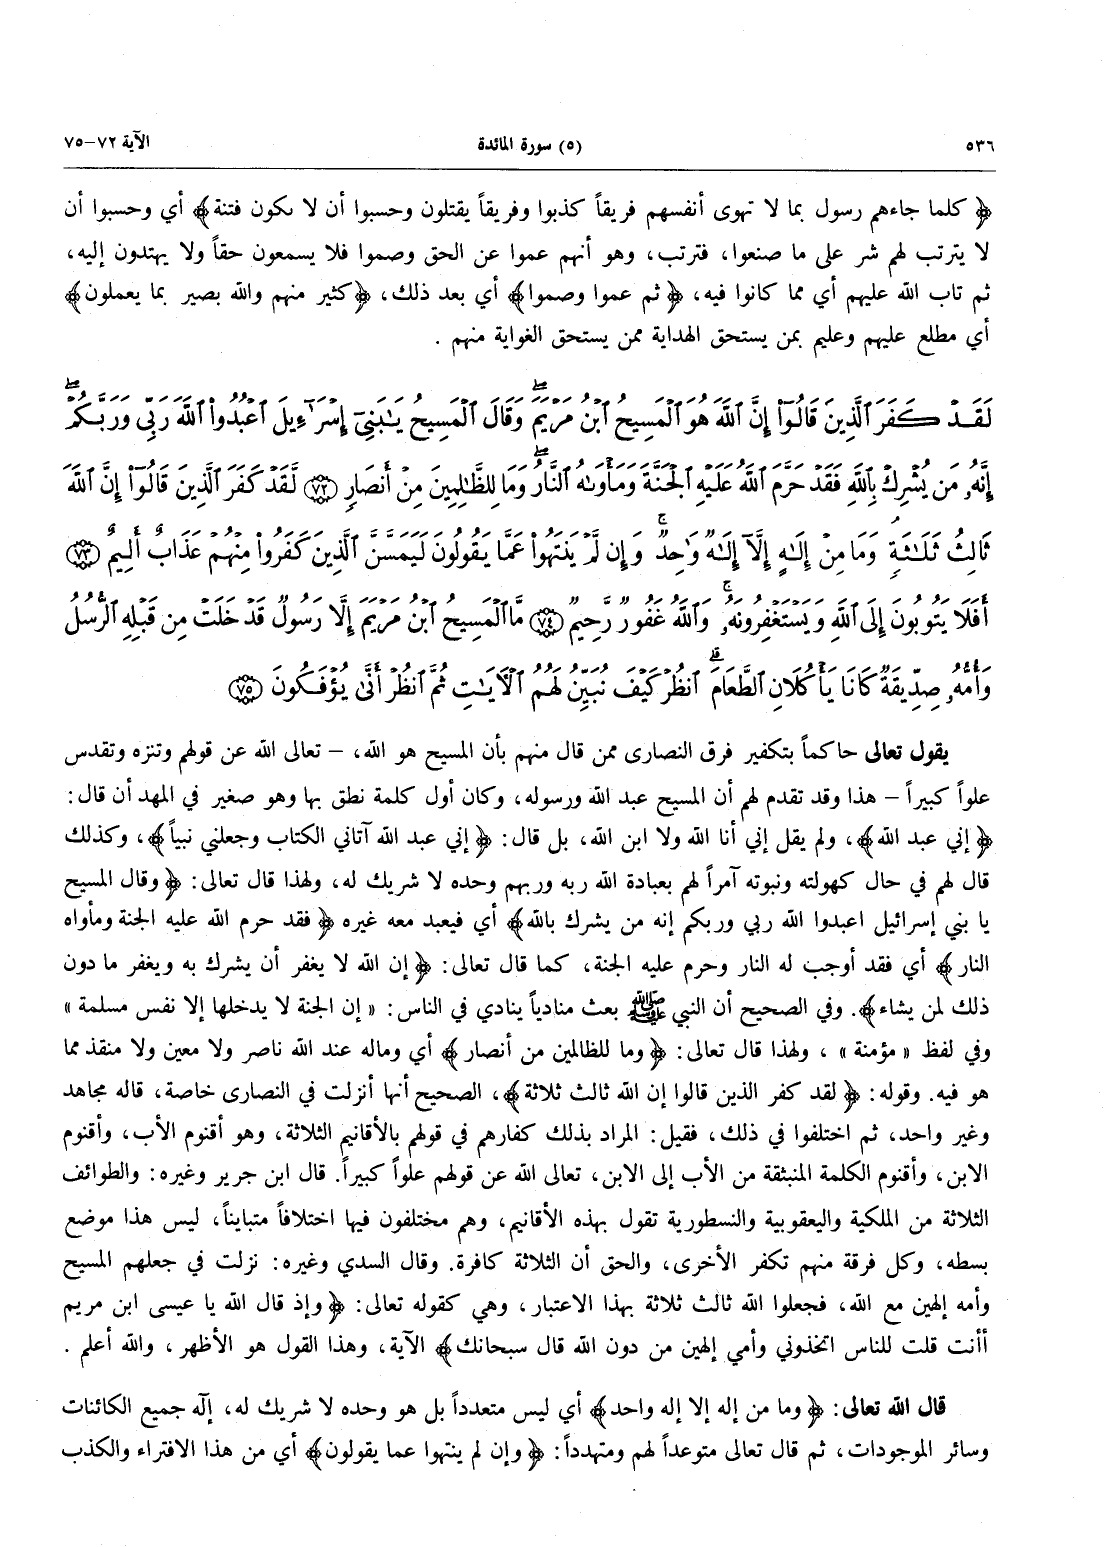 ٥٣٦ (٥) سورة المائدة الآية ٧٢-٧٥
﴿ كلما جاءهم رسول بما لا تهوى أنفسهم فريقاً كذبوا وفريقاً يقتلون وحسبوا أن لا يكون فتنة﴾ أي وحسبوا أن
لا يترتب لهم شر على ما صنعوا، فترتب، وهو أنهم عموا عن الحق وصموا فلا يسمعون حقاً ولا يهتدون إليه،
ثم تاب الله عليهم أي مما كانوا فيه، ﴿ ثم عموا وصموا﴾ أي بعد ذلك، ﴿كثير منهم والله بصير بما يعملون﴾
أي مطلع عليهم وعليم بمن يستحق الهداية ممن يستحق الغواية منهم .
لَقَدْ كَفَرَ ٱلَّذِينَ قَالُوٓا۟ إِنَّ ٱللَّهَ هُوَ ٱلْمَسِيحُ ٱبْنُ مَرْيَمَ ۖ وَقَالَ ٱلْمَسِيحُ يَـٰبَنِىٓ إِسْرَٰٓءِيلَ ٱعْبُدُوا۟ ٱللَّهَ رَبِّى وَرَبَّكُمْ ۖ
إِنَّهُۥ مَن يُشْرِكْ بِٱللَّهِ فَقَدْ حَرَّمَ ٱللَّهُ عَلَيْهِ ٱلْجَنَّةَ وَمَأْوَىٰهُ ٱلنَّارُ ۖ وَمَا لِلظَّـٰلِمِينَ مِنْ أَنصَارٍ ﴿٧٢﴾ لَّقَدْ كَفَرَ ٱلَّذِينَ قَالُوٓا۟ إِنَّ ٱللَّهَ
ثَالِثُ ثَلَـٰثَةٍ ۘ وَمَا مِنْ إِلَـٰهٍ إِلَّآ إِلَـٰهٌ وَٰحِدٌ ۚ وَإِن لَّمْ يَنتَهُوا۟ عَمَّا يَقُولُونَ لَيَمَسَّنَّ ٱلَّذِينَ كَفَرُوا۟ مِنْهُمْ عَذَابٌ أَلِيمٌ ﴿٧٣﴾
أَفَلَا يَتُوبُونَ إِلَى ٱللَّهِ وَيَسْتَغْفِرُونَهُۥ ۚ وَٱللَّهُ غَفُورٌ رَّحِيمٌ ﴿٧٤﴾ مَّا ٱلْمَسِيحُ ٱبْنُ مَرْيَمَ إِلَّا رَسُولٌ قَدْ خَلَتْ مِن قَبْلِهِ ٱلرُّسُلُ
وَأُمُّهُۥ صِدِّيقَةٌ ۖ كَانَا يَأْكُلَانِ ٱلطَّعَامَ ۗ ٱنظُرْ كَيْفَ نُبَيِّنُ لَهُمُ ٱلْـَٔايَـٰتِ ثُمَّ ٱنظُرْ أَنَّىٰ يُؤْفَكُونَ ﴿٧٥﴾
يقول تعالى حاكماً بتكفير فرق النصارى ممن قال منهم بأن المسيح هو الله، – تعالى الله عن قولهم وتنزه وتقدس
علواً كبيراً – هذا وقد تقدم لهم أن المسيح عبد الله ورسوله، وكان أول كلمة نطق بها وهو صغير في المهد أن قال:
﴿ إني عبد الله﴾، ولم يقل إني أنا الله ولا ابن الله، بل قال: ﴿ إني عبد الله آتاني الكتاب وجعلني نبياً﴾، وكذلك
قال لهم في حال كهولته ونبوته آمراً لهم بعبادة الله ربه وربهم وحده لا شريك له، ولهذا قال تعالى: ﴿ وقال المسيح
يا بني إسرائيل اعبدوا الله ربي وربكم إنه من يشرك بالله﴾ أي فيعبد معه غيره ﴿ فقد حرم الله عليه الجنة ومأواه
النار﴾ أي فقد أوجب له النار وحرم عليه الجنة، كما قال تعالى: ﴿ إن الله لا يغفر أن يشرك به ويغفر ما دون
ذلك لمن يشاء﴾. وفي الصحيح أن النبي ﷺ بعث منادياً ينادي في الناس: « إن الجنة لا يدخلها إلا نفس مسلمة »
وفي لفظ « مؤمنة » ، ولهذا قال تعالى: ﴿ وما للظالمين من أنصار﴾ أي وماله عند الله ناصر ولا معين ولا منقذ مما
هو فيه. وقوله: ﴿ لقد كفر الذين قالوا إن الله ثالث ثلاثة﴾، الصحيح أنها أنزلت في النصارى خاصة، قاله مجاهد
وغير واحد، ثم اختلفوا في ذلك، فقيل: المراد بذلك كفارهم في قولهم بالأقانيم الثلاثة، وهو أقنوم الأب، وأقنوم
الابن، وأقنوم الكلمة المنبثقة من الأب إلى الابن، تعالى الله عن قولهم علواً كبيراً. قال ابن جرير وغيره: والطوائف
الثلاثة من الملكية واليعقوبية والنسطورية تقول بهذه الأقانيم، وهم مختلفون فيها اختلافاً متبايناً، ليس هذا موضع
بسطه، وكل فرقة منهم تكفر الأخرى، والحق أن الثلاثة كافرة. وقال السدي وغيره: نزلت في جعلهم المسيح
وأمه إلهين مع الله، فجعلوا الله ثالث ثلاثة بهذا الاعتبار، وهي كقوله تعالى: ﴿ وإذ قال الله يا عيسى ابن مريم
أأنت قلت للناس اتخذوني وأمي إلهين من دون الله قال سبحانك﴾ الآية، وهذا القول هو الأظهر، والله أعلم .
قال الله تعالى: ﴿ وما من إله إلا إله واحد﴾ أي ليس متعدداً بل هو وحده لا شريك له، إلّه جميع الكائنات
وسائر الموجودات، ثم قال تعالى متوعداً لهم ومتهدداً: ﴿ وإن لم ينتهوا عما يقولون﴾ أي من هذا الافتراء والكذب